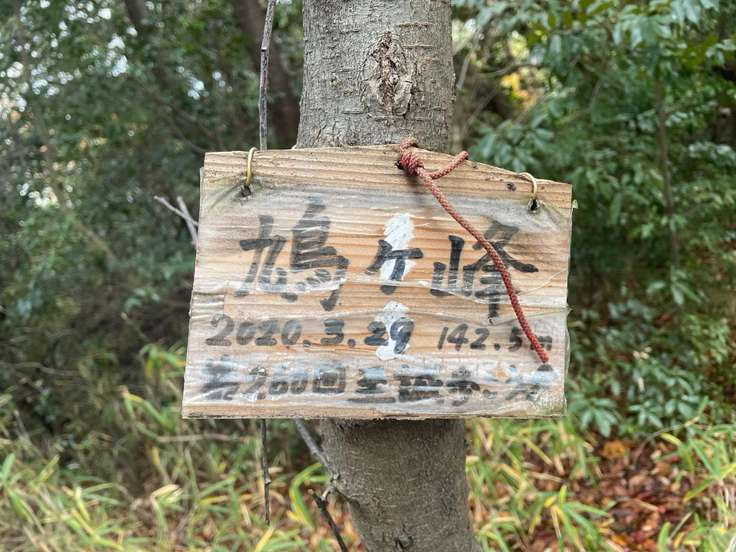 鳩ヶ峰
2020.3.29 142.5m
260回